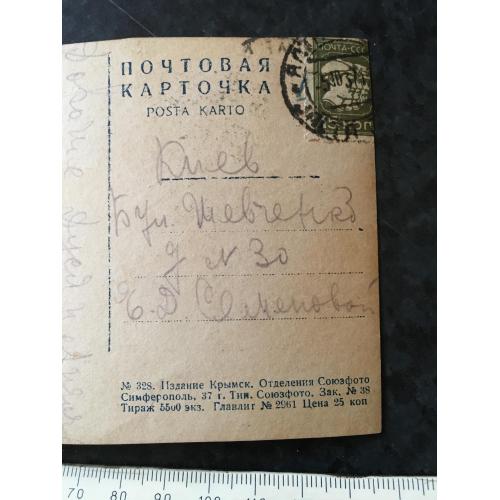 ПОЧТОВАЯ
КАРТОЧКА
POSTA KARTO
ПОЧТА-СССР
Киев
Бул Шевченко
д № 30
Е. Д. Семеновой
№ 328. Издание Крымск. Отделения Союзфото
Симферополь, 37 г. Тип. Союзфото. Зак. № 38
Тираж 5500 экз. Главлит № 2961 Цена 25 коп
70 80 90 100 110 120 130 140 150